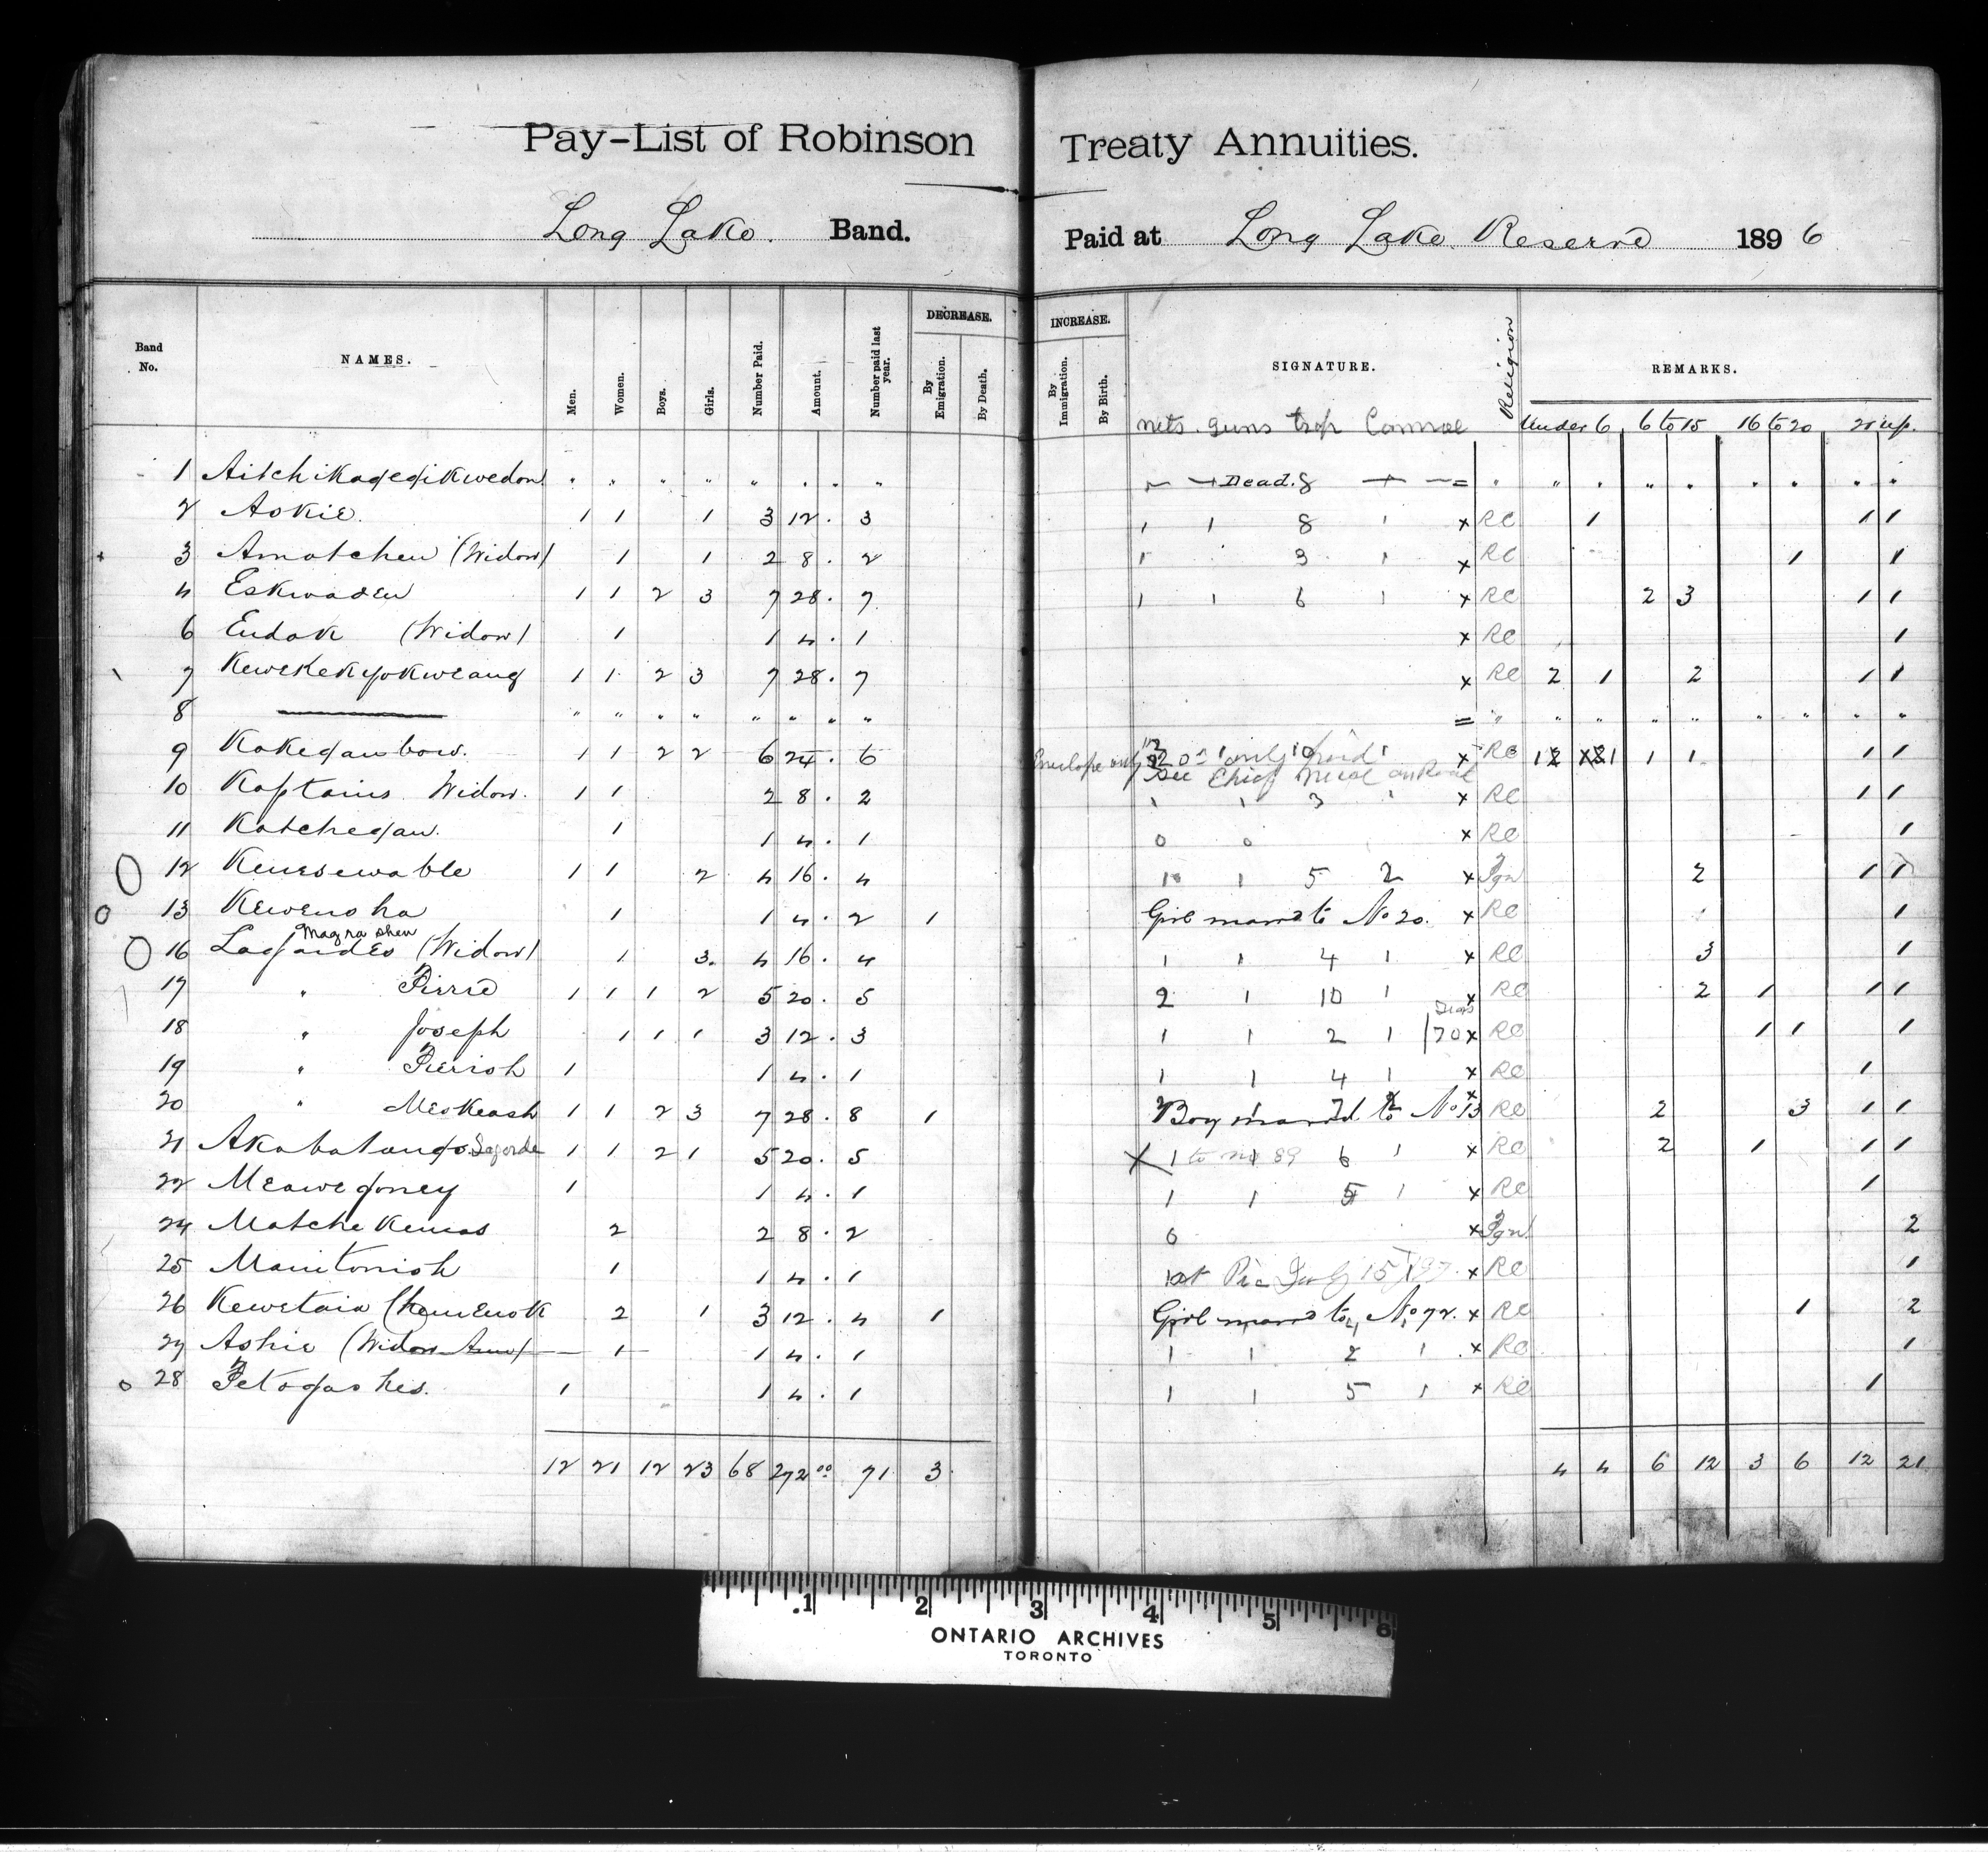 Pay-List of Robinson Treaty Annuities.
Long Lake. Band. Paid at Long Lake Reserve 1896
Band No. NAMES. Men. Women. Boys. Girls. Number Paid. Amount. Number paid last year. DECREASE. By Emigration. By Death. INCREASE. By Immigration. By Birth. SIGNATURE. Religion REMARKS.
nets. guns trap Cannoe Under 6 6 to 15 16 to 20 21 up.
1 Aitchikagegikwedon " " " " " . . " Dead. 8 = " " " " " " " " "
2 Aokie. 1 1 1 3 12. 3 1 1 8 1 x RC 1 1 1
3 Amatchew (Widow) 1 1 2 8. 2 1 3 1 x RC 1 1
4 Eskwaden 1 1 2 3 7 28. 7 1 1 6 1 x RC 2 3 1 1
6 Eudak (Widow) 1 1 4. 1 x RC 1
7 Kewekekgokweang 1 1 2 3 7 28. 7 x RC 2 1 2 1 1
8 " " " " " " " " = " " " " " " " " "
9 Kakeganbow. 1 1 2 2 6 24. 6 Envelope only x RC 1 1 1 1
10 Kaptains Widow. 1 1 2 8. 2 1 1 3 1 x RC 1 1
11 Katchegan. 1 1 4. 1 0 0 x RC 1
12 Kenesewable 1 1 2 4 16. 4 1 1 5 2 x Pgn 2 1 1
13 Kewensha 1 1 4. 2 1 Girl marrd to No 20. x RC 1
Magrashew
16 Lagardes (Widow) 1 3. 4 16. 4 1 1 4 1 x RC 3 1
17 " Pierre 1 1 1 2 5 20. 5 2 1 10 1 x RC 2 1 1 1
18 " Joseph 1 1 1 3 12. 3 1 1 2 1 70 x RC 1 1 1
19 " Pierrish 1 1 4. 1 1 1 4 1 x RC 1
20 " Meskeash 1 1 2 3 7 28. 8 1 Boy marrd to No 13 x RC 2 3 1 1
21 Akabatango. Lagarde 1 1 2 1 5 20. 5 X 1 to no 89 6 1 x RC 2 1 1 1
22 Meawegoney 1 1 4. 1 1 1 5 1 x RC 1
24 Matchekemas 2 2 8. 2 0 x Pgn 2
25 Manitonish 1 1 4. 1 at Pic July 15 x RC 1
26 Kewetain (Kemenok 2 1 3 12. 4 1 Girl marrd to No 72. x RC 1 2
27 Ashie (Widow Ann) 1 1 4. 1 1 1 2 1 x RC 1
28 Petagashes. 1 1 4. 1 1 1 5 1 x RC 1
12 21 12 23 68 272 00 71 3 4 4 6 12 3 6 12 21
.1 2 3 4 5 6
ONTARIO ARCHIVES
TORONTO